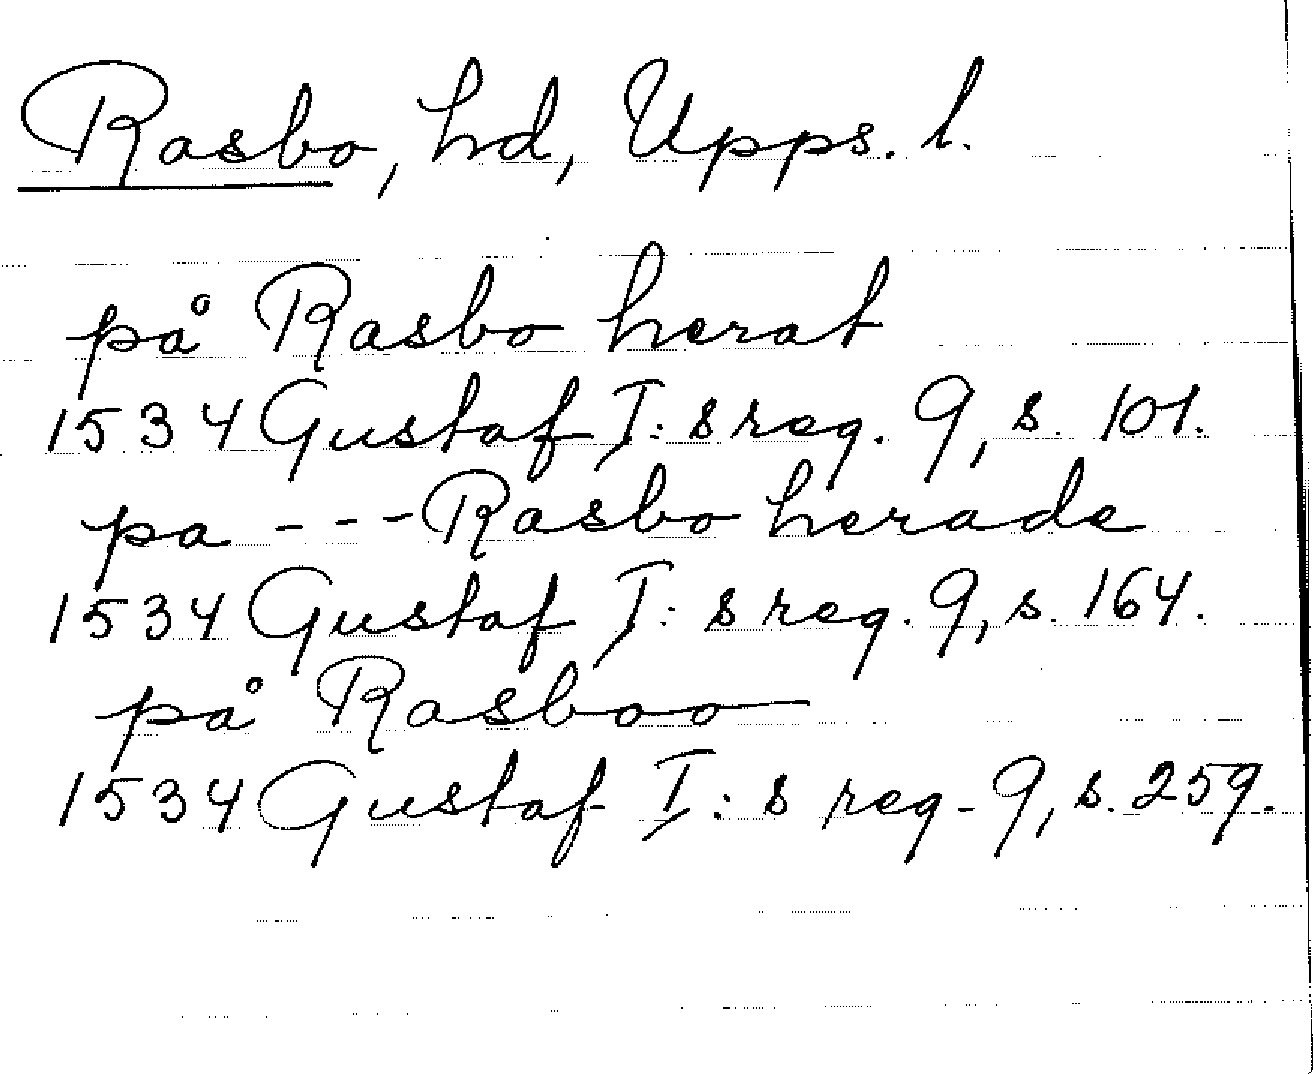 Rasbo, hd, Upps. l.
på Rasbo herat
1534 Gustaf I:s reg. 9, s. 101.
pa - - - Rasbo herade
1534 Gustaf I:s reg. 9, s. 164.
på Rasboo
1534 Gustaf I:s reg. 9, s. 259.